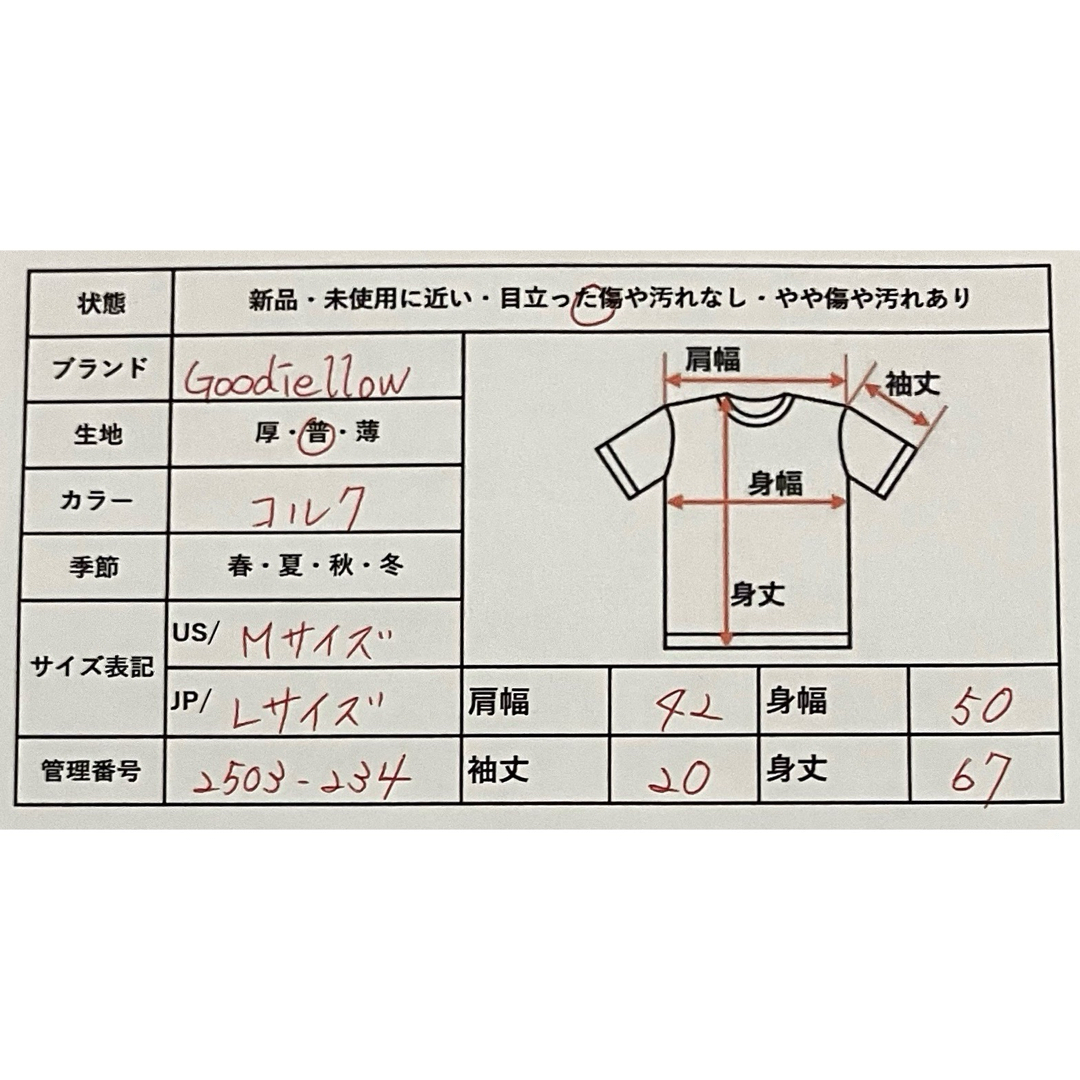 状態 新品・未使用に近い・目立った傷や汚れなし・やや傷や汚れあり
ブランド Goodiellow
生地 厚・普・薄
カラー コルク
季節 春・夏・秋・冬
サイズ表記
US/ Mサイズ
JP/ Lサイズ
管理番号 2503-234
肩幅
袖丈
身幅
身丈
肩幅 42 身幅 50
袖丈 20 身丈 67